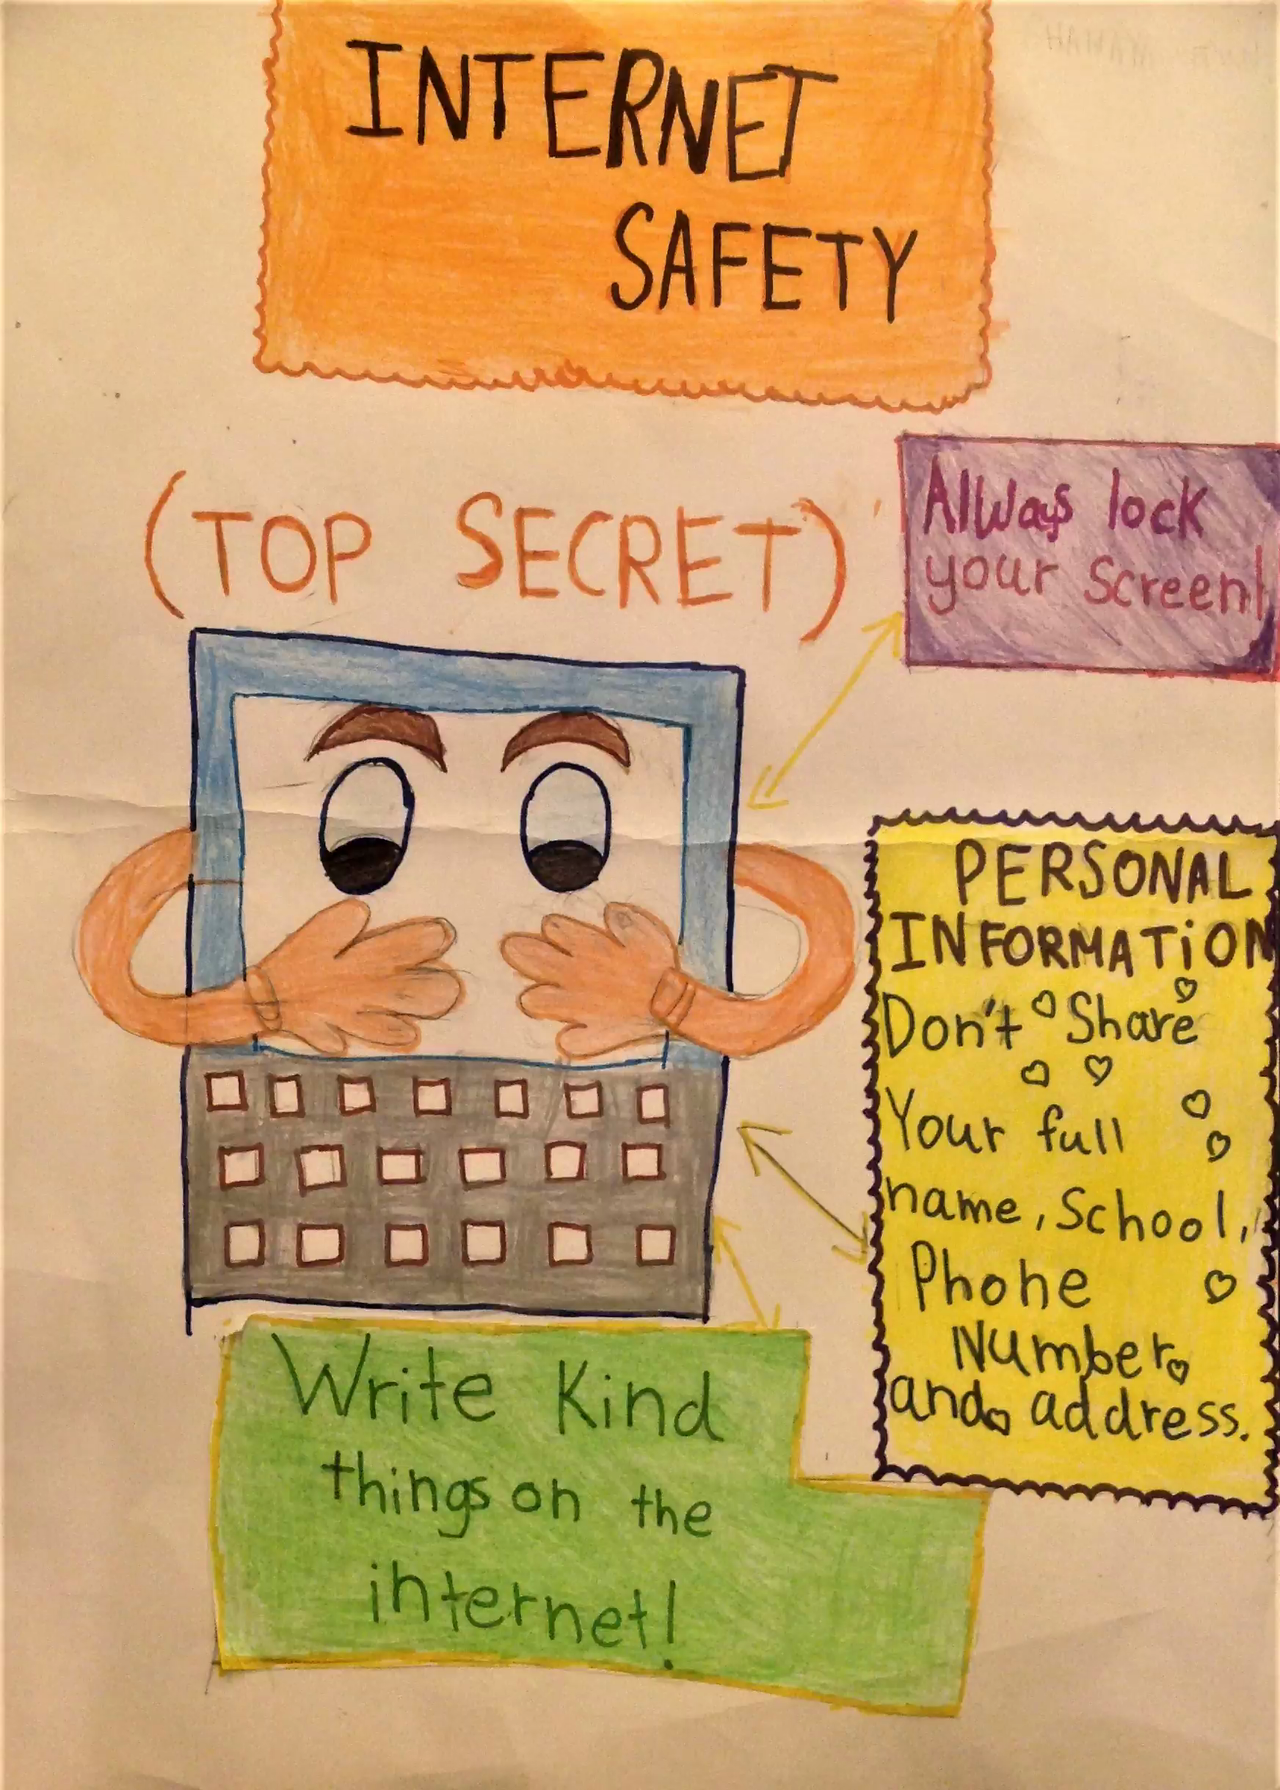 INTERNET
SAFETY
(TOP SECRET)
Allways lock
your screen!
PERSONAL
INFORMATiON
Don't Share
Your full
name, School,
Phone
Number
and address.
Write Kind
things on the
internet!